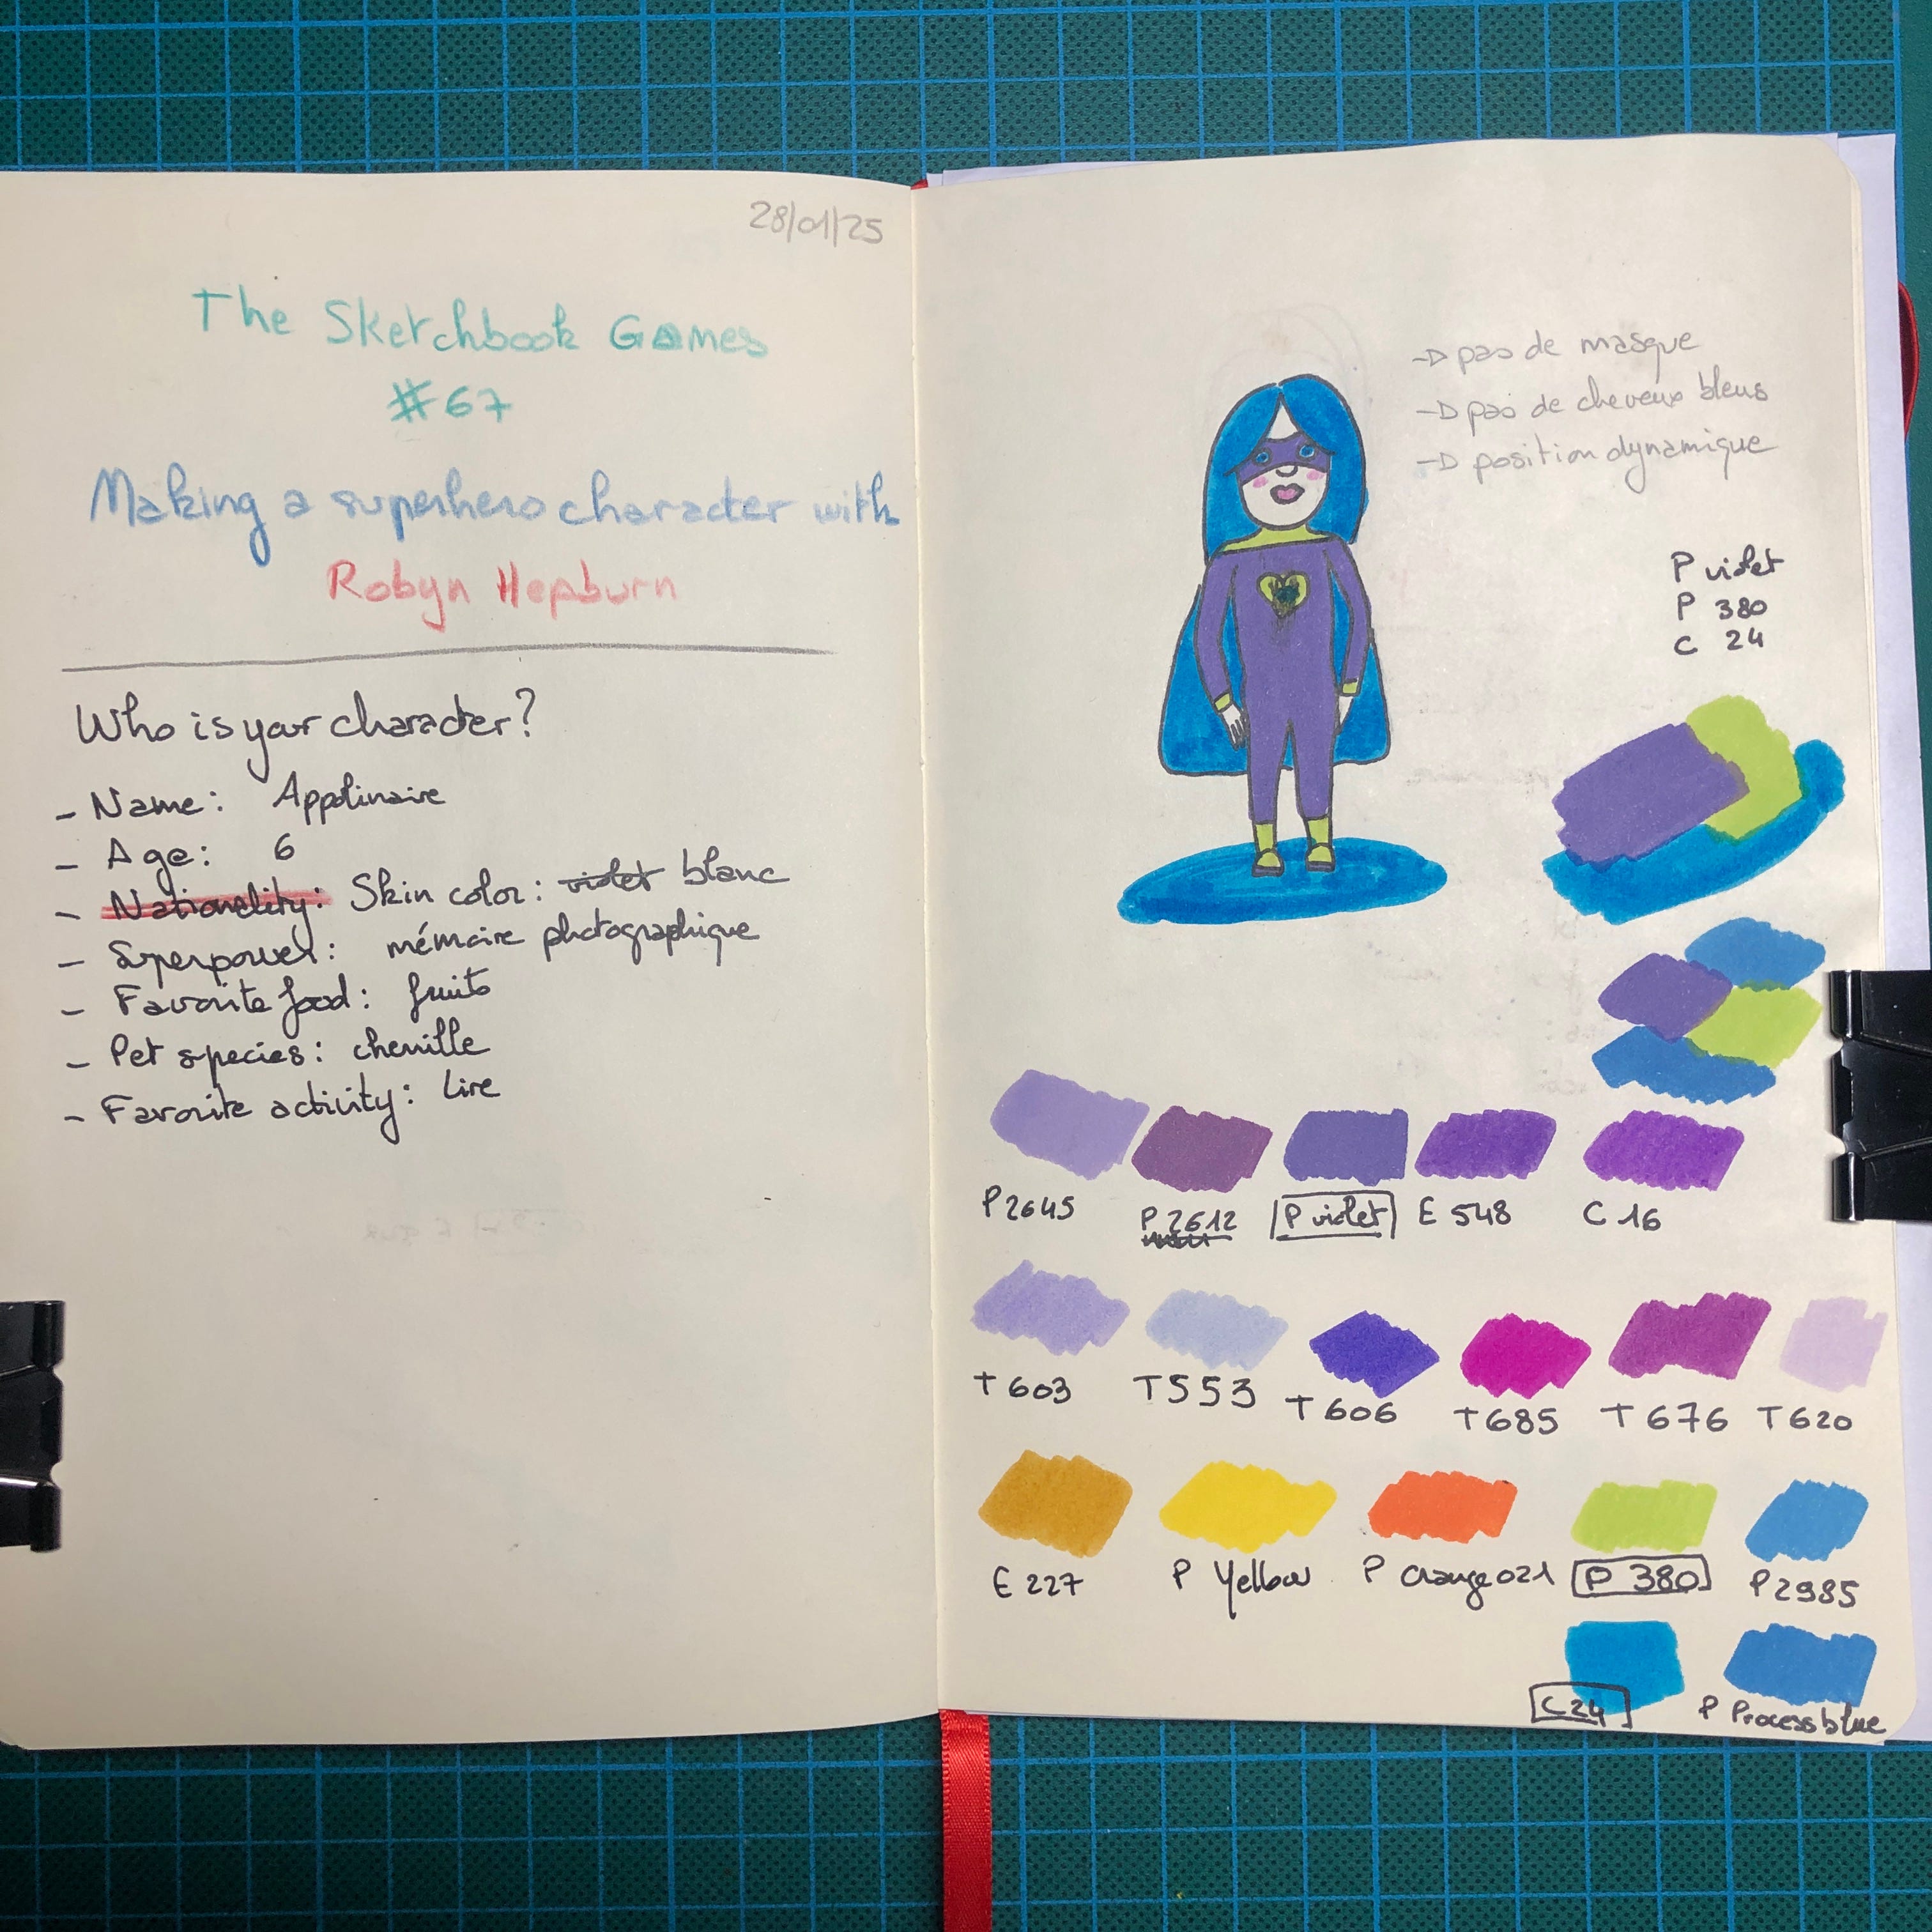 28/01/25
The Sketchbook Games
#67
Making a superhero character with
Robyn Hepburn
Who is your character?
- Name: Appolinaire
- Age: 6
- Nationality: Skin color: violet blanc
- Superpower: mémoire photographique
- Favorite food: fruits
- Pet species: chenille
- Favorite activity: Lire
→ pas de masque
→ pas de cheveux bleus
→ position dynamique
P violet
P 380
C 24
P2645
P 2612
P violet
E 548
C 16
T 603
T553
T 606
T685
T 676
T 620
E 227
P Yellow
P Orange 021
P 380
P2985
C24
P Process blue